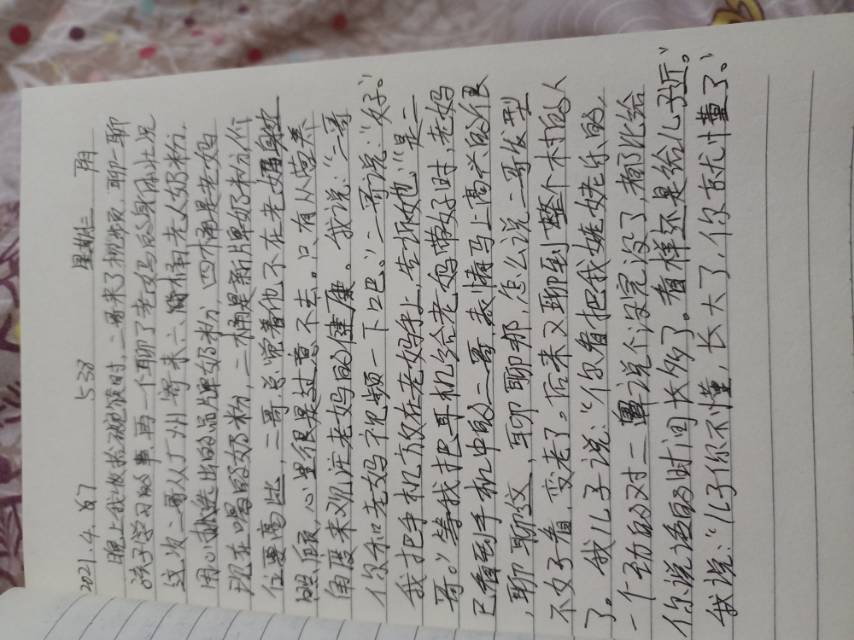 2021.4.67 538 星期二 阴
晚上我收拾碗筷时,二哥来了视频,聊一聊
孩子学习的事,再一个聊了老妈的身体状况
这次二哥从广州寄来六桶老人奶粉,
用心挑选出的品牌奶粉,四桶是老妈
现在喝的奶粉,二桶是新牌奶粉,价
位要高些,二哥总觉着他不在老妈身边
照顾,心里很是过意不去。只有从营养
角度来观注老妈的健康。我说:“二哥
你和老妈视频一下吧。”二哥说:“好。”
我把手机放在老妈手上,告诉她:“是二
哥。”等我把耳机给老妈带好时,老妈
已看到手机中的二哥,表情马上高兴的很
,聊聊这,聊聊那,怎么说二哥发型
不好看,变老了。后来又聊到整个村的人
了。我儿子说:“你看把我姥姥乐的,
一个劲的对二舅说个没完没了,都比给
你说话的时间长多了。看样还是给儿子近。”
我说:“儿子你不懂,长大了,你就懂了。”